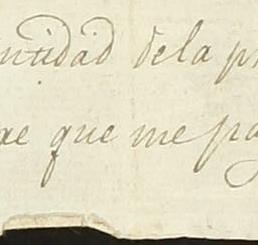 ntidad dela pr
ae que me pa